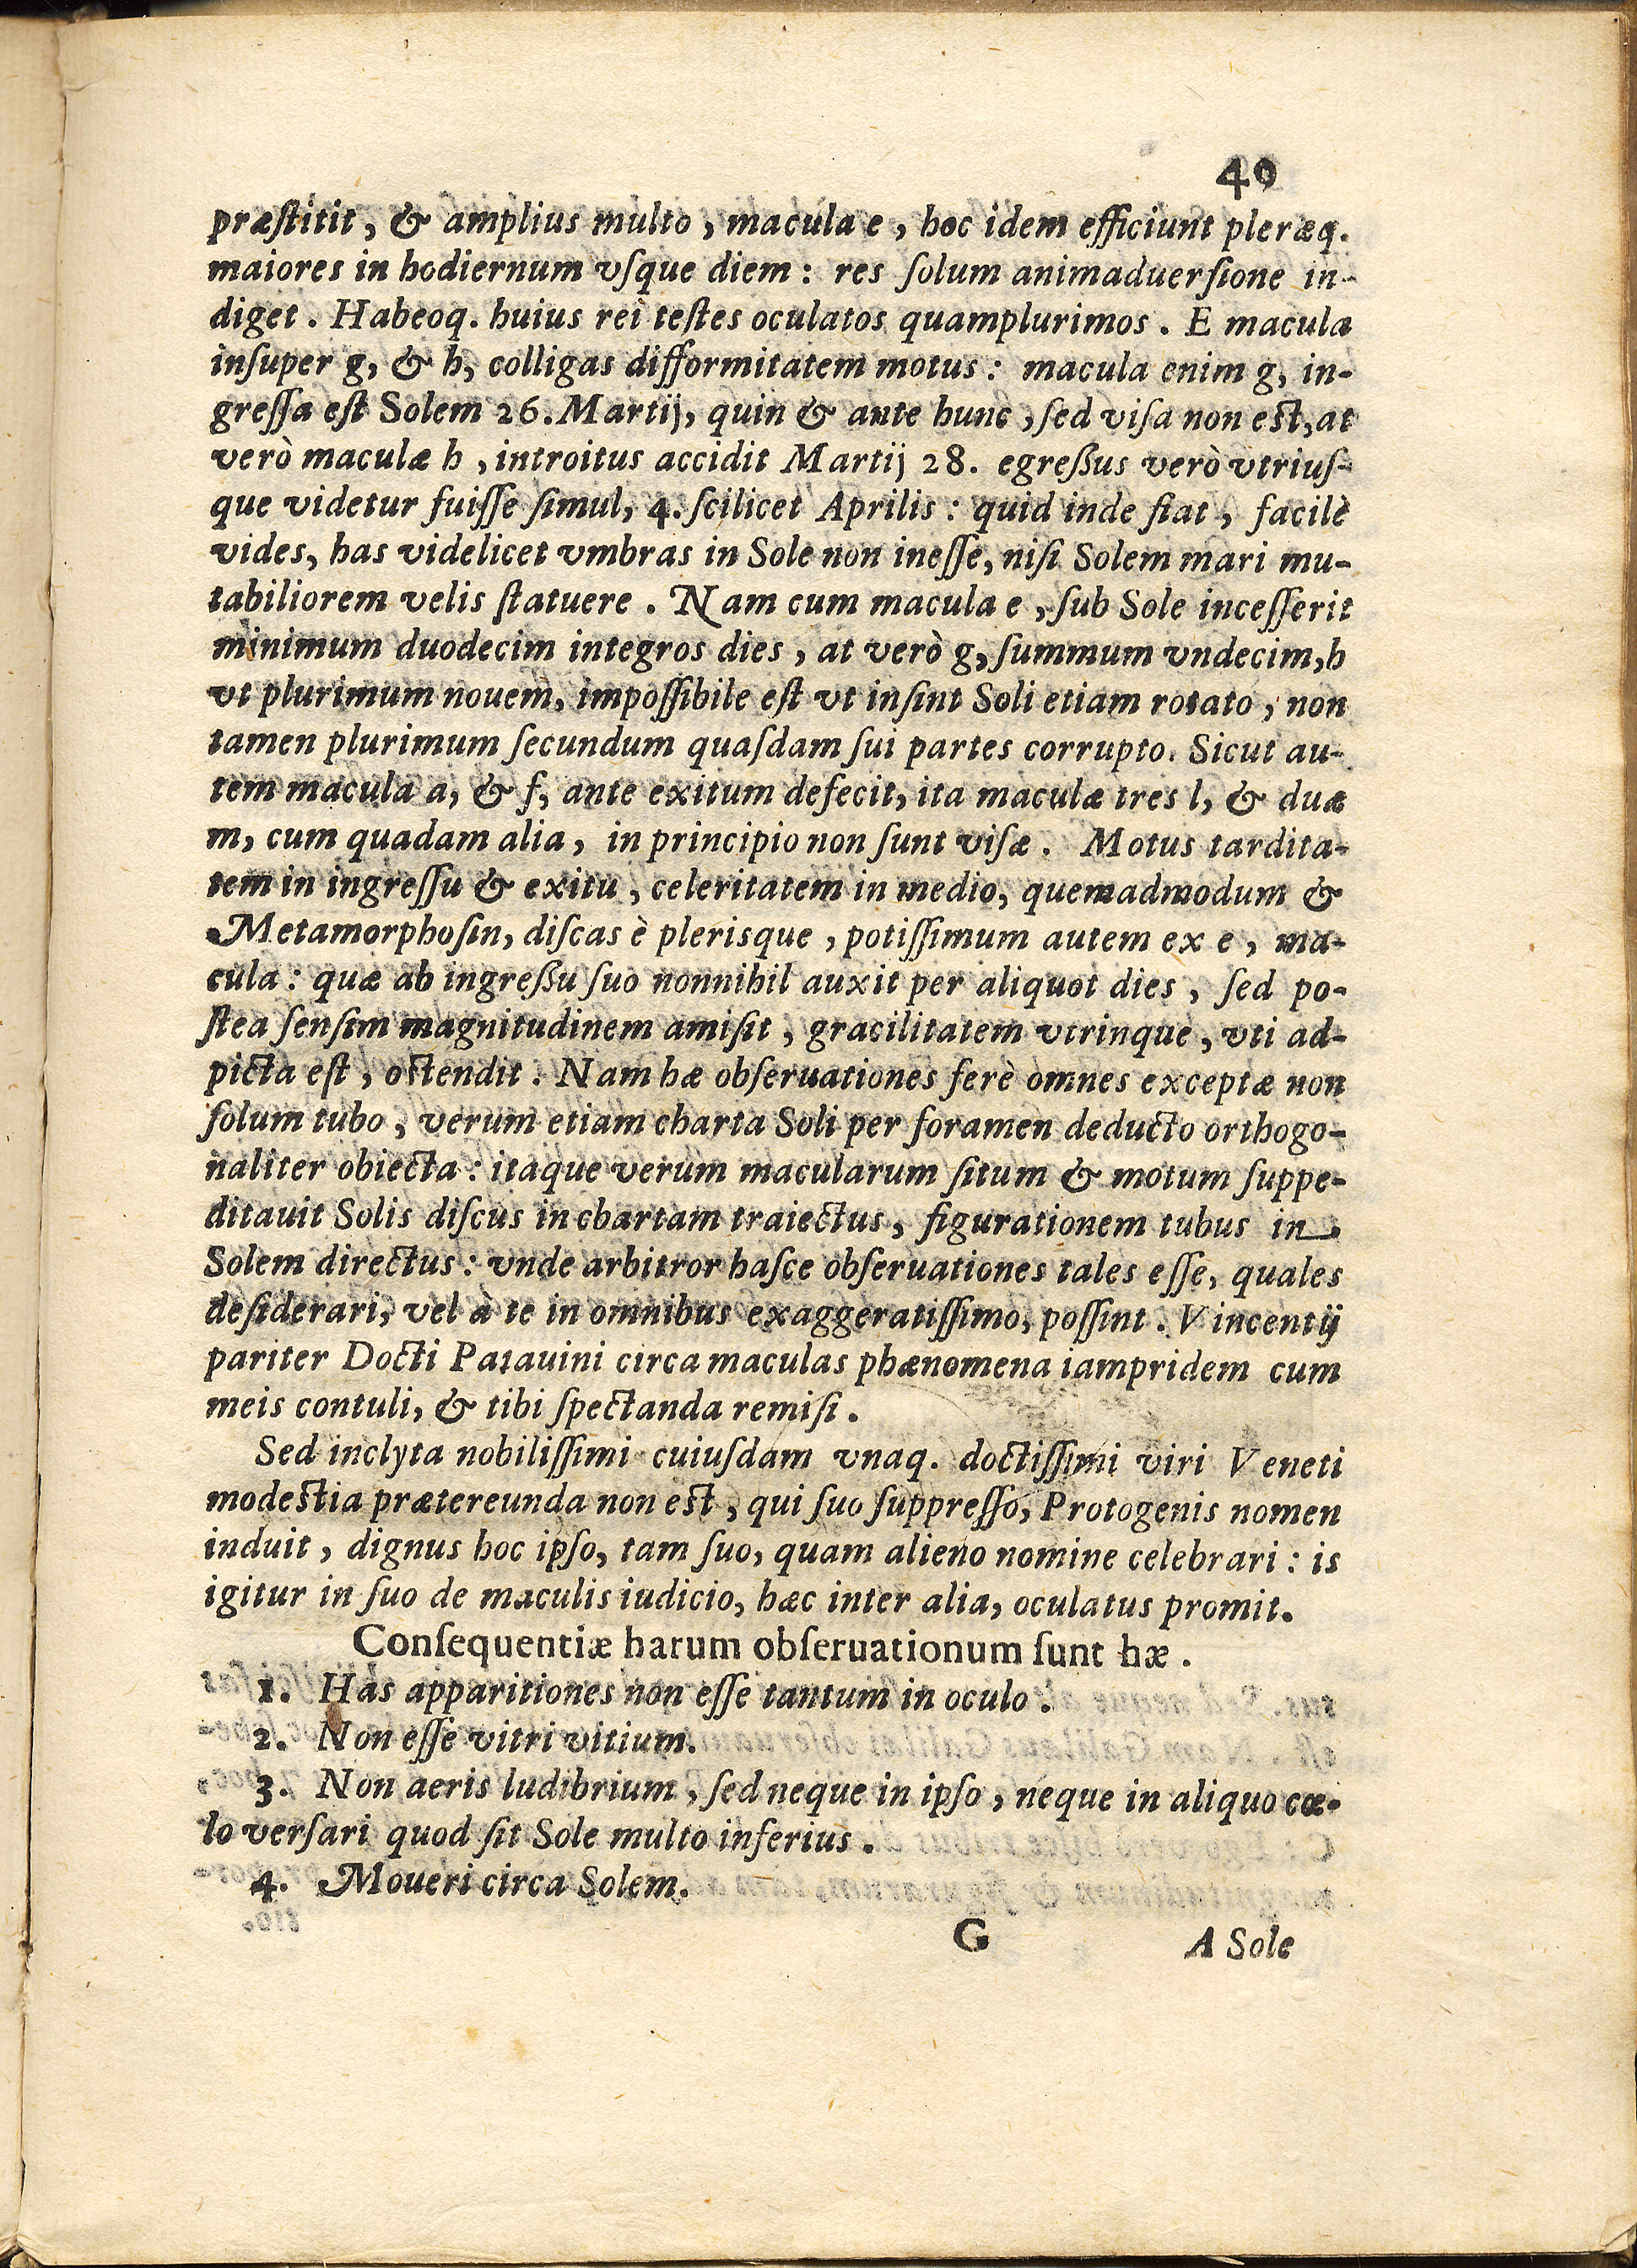 40
præſtitit, & amplius multo, macula e, hoc idem efficiunt pleræq.
maiores in hodiernum vſque diem: res ſolum animaduerſione in-
diget. Habeoq. huius rei teſtes oculatos quamplurimos. E macula
inſuper g, & h, colligas difformitatem motus: macula enim g, in-
greſſa eſt Solem 26. Martij, quin & ante hunc, ſed viſa non eſt, at
verò maculæ h, introitus accidit Martij 28. egreßus verò vtriuſ-
que videtur fuiſſe ſimul, 4. ſcilicet Aprilis: quid inde fiat, facilè
vides, has videlicet vmbras in Sole non ineſſe, niſi Solem mari mu-
tabiliorem velis ſtatuere. Nam cum macula e, ſub Sole inceſſerit
minimum duodecim integros dies, at verò g, ſummum vndecim, h
vt plurimum nouem, impoſſibile eſt vt inſint Soli etiam rotato, non
tamen plurimum ſecundum quaſdam ſui partes corrupto. Sicut au-
tem macula a, & f, ante exitum defecit, ita maculæ tres l, & duæ
m, cum quadam alia, in principio non ſunt viſæ. Motus tardita-
tem in ingreſſu & exitu, celeritatem in medio, quemadmodum &
Metamorphoſin, diſcas è plerisque, potiſſimum autem ex e, ma-
cula: quæ ab ingreßu ſuo nonnihil auxit per aliquot dies, ſed po-
ſtea ſenſim magnitudinem amiſit, gracilitatem vtrinque, vti ad-
picta eſt, oſtendit. Nam hæ obſeruationes ferè omnes exceptæ non
ſolum tubo, verum etiam charta Soli per foramen deducto orthogo-
naliter obiecta: itaque verum macularum ſitum & motum ſuppe-
ditauit Solis diſcus in chartam traiectus, figurationem tubus in
Solem directus: vnde arbitror haſce obſeruationes tales eſſe, quales
deſiderari, vel à te in omnibus exaggeratiſſimo, poſſint. Vincentij
pariter Docti Patauini circa maculas phænomena iampridem cum
meis contuli, & tibi ſpectanda remiſi.
Sed inclyta nobiliſſimi cuiuſdam vnaq. doctiſſimi viri Veneti
modeſtia prætereunda non eſt, qui ſuo ſuppreſſo, Protogenis nomen
induit, dignus hoc ipſo, tam ſuo, quam alieno nomine celebrari: is
igitur in ſuo de maculis iudicio, hæc inter alia, oculatus promit.
Conſequentiæ harum obſeruationum ſunt hæ.
1. Has apparitiones non eſſe tantum in oculo.
2. Non eſſe vitri vitium.
3. Non aeris ludibrium, ſed neque in ipſo, neque in aliquo cœ-
lo verſari quod ſit Sole multo inferius.
4. Moueri circa Solem.
G A Sole